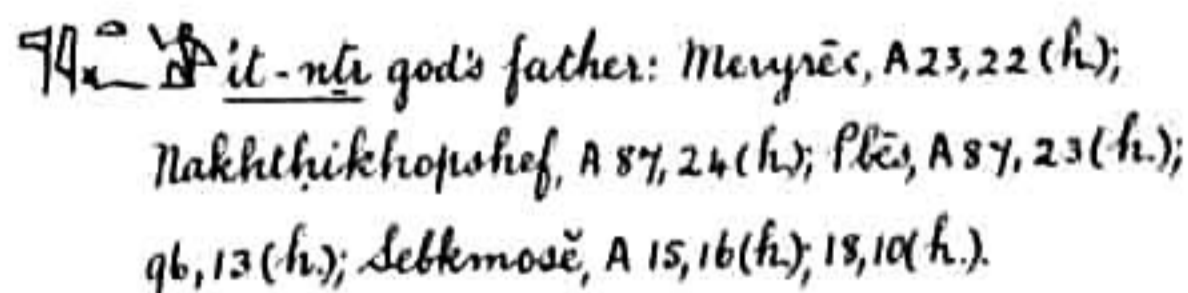 it-nṯr god's father: Meryrēc, A 23,22 (h.);
Nakhtḥikhopshef, A 87,24 (h.); Pbēs, A 87,23 (h.);
96,13 (h.); Sebkmosĕ, A 15,16 (h.); 18,10 (h.).